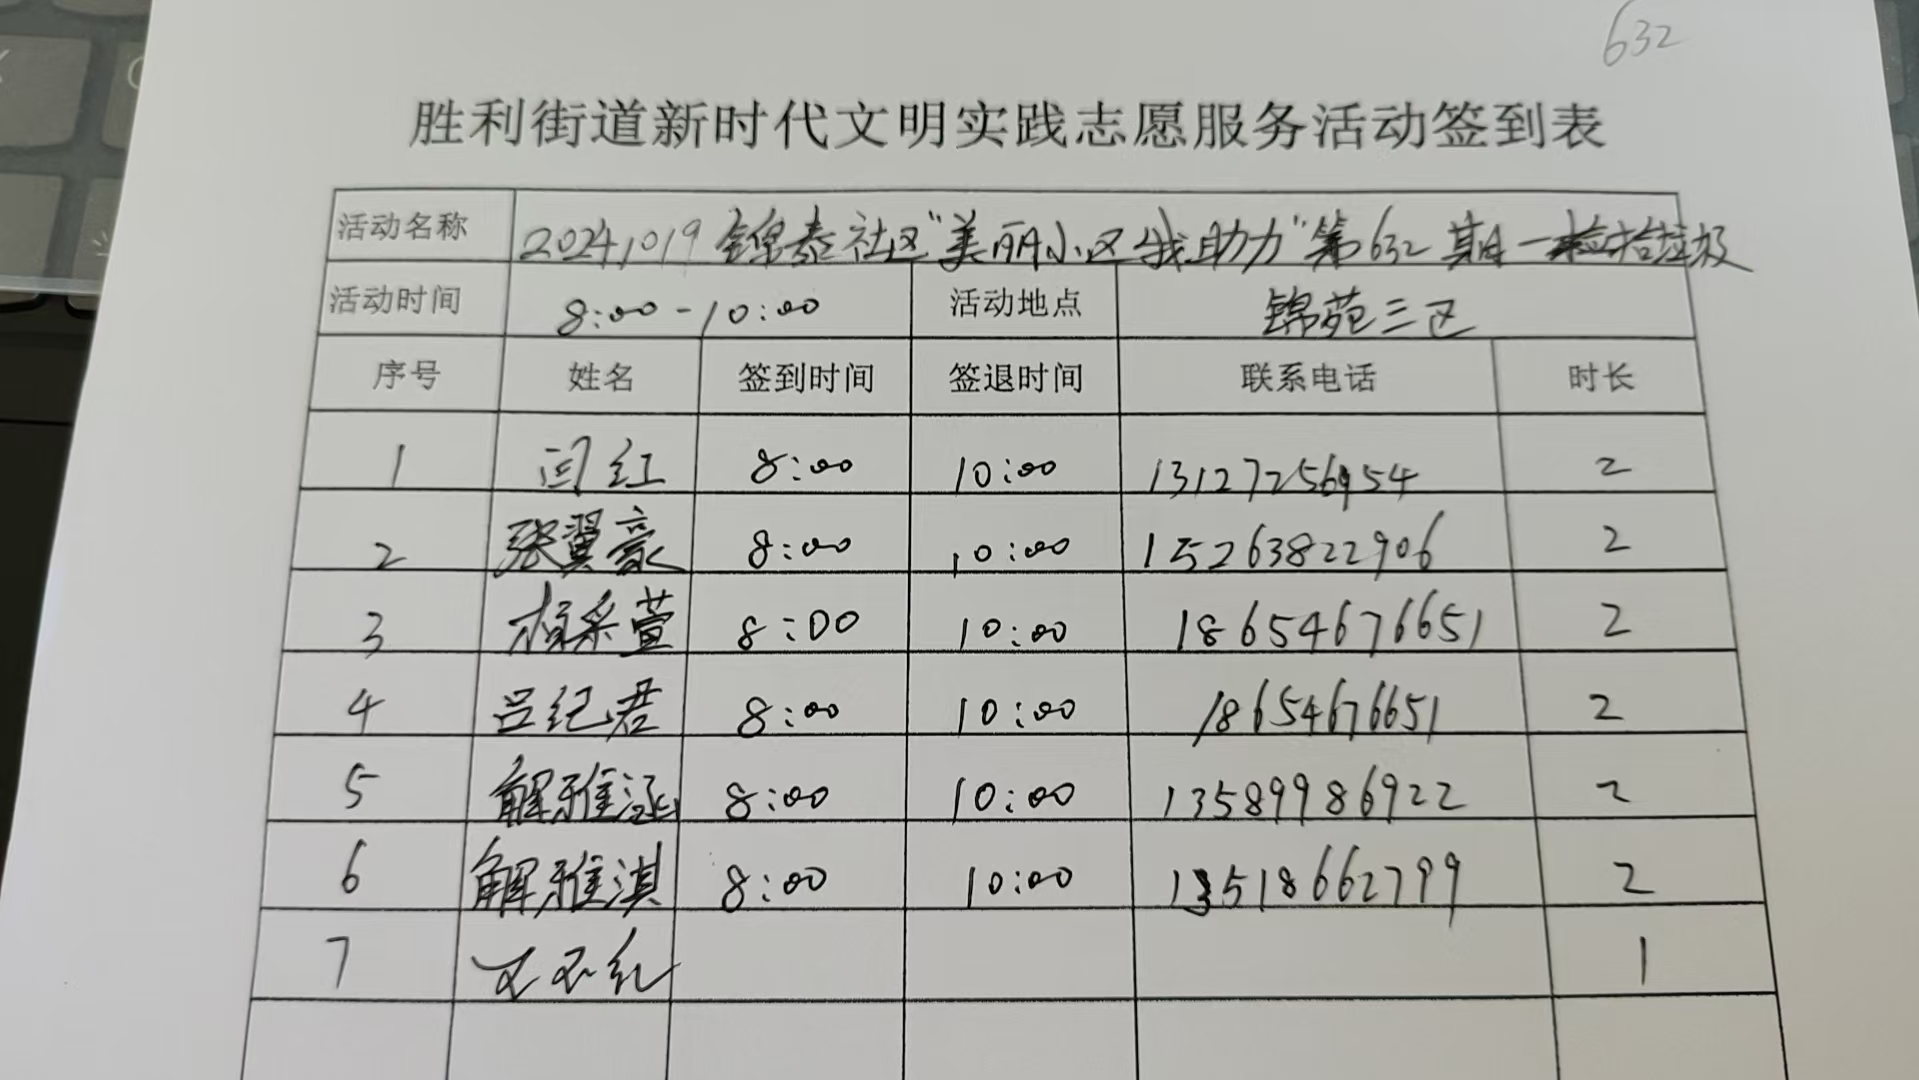 632
胜利街道新时代文明实践志愿服务活动签到表
活动名称 20241019 锦泰社区“美丽小区 我助力”第632期—捡拾垃圾
活动时间 8:00-10:00 活动地点 锦苑三区
序号 姓名 签到时间 签退时间 联系电话 时长
1 闫红 8:00 10:00 13127256954 2
2 张翼豪 8:00 10:00 15263822906 2
3 采萱 8:00 10:00 18654676651 2
4 吕纪君 8:00 10:00 18654676651 2
5 解雅涵 8:00 10:00 13589986922 2
6 解雅淇 8:00 10:00 13518662799 2
7 红 1